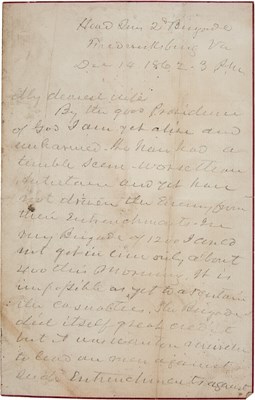 Head Qrs 2d Brigade
Fredericksburg Va
Dec 14 1862 - 3 PM
My dearest wife
By the good Providence
of God I am yet alive and
unharmed. We have had a
terrible scene - worse than
Antietam and yet have
not driven the Enemy from
their Entrenchments - In
my Brigade of 1200 I could
not get in line only about
400 this morning. It is
impossible as yet to ascertain
the casualties. The Brigade
did itself great credit
but it was
to lead on men against
such Entrenchments & against